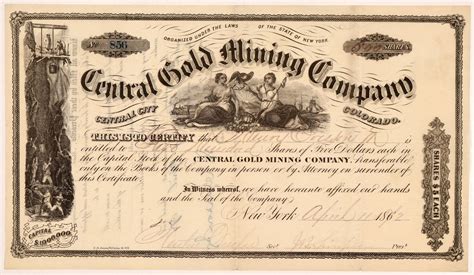 ORGANIZED UNDER THE LAWS OF THE STATE OF NEW YORK.
No 856
SHARES
Central Gold Mining Company
CENTRAL CITY
COLORADO.
THIS IS TO CERTIFY that
entitled to Hundred Shares of Five Dollars each in
the Capital Stock of the CENTRAL GOLD MINING COMPANY, transferable
only on the Books of the Company in person or by Attorney on surrender of
this Certificate.
In Witness whereof, we have hereunto affixed our hands
and the Seal of the Company.
New York April 186
Sec. Pres.
CAPITAL $1,000,000
SHARES $5 EACH